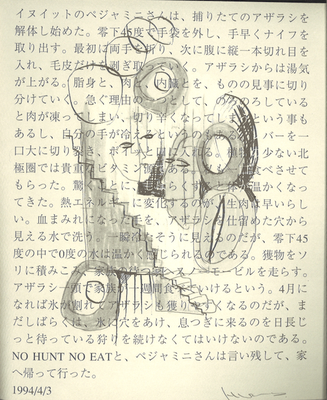 イヌイットのペジャミニさんは、捕りたてのアザラシを
解体し始めた。零下45度で手袋を外し、手早くナイフを
取り出す。最初に両手を
入れ、毛皮だけを剥き取っていく。アザラシからは湯気
が上がる。脂身と、肉、内臓とを、ものの見事に切り
分けていく。急ぐ理由の一つとして、のろのろしている
と肉が凍ってしまい、切り辛くなってしまうという事も
あるし、自分の手が冷える
口大に切り裂き、ポイッと
極圏では貴重なビタミン源
もらった。驚くことに、
てきた。熱エネルギーに変化するのが、生肉は早いらし
い。血まみれになった手を、アザラシを仕留めた穴から
見える水で洗う。一瞬冷たそうに見えるのだが、零下45
度の中で0度の水は温かく感じられるのである。獲物をソ
リに積みこみ、家族の待つ
アザラシ一頭で家族が一週間食べていけるという。4月に
なれば氷が割れてアザラシも獲りやすくなるのだが、ま
だしばらくは、氷に穴をあけ、息つぎに来るのを日長じ
っと待っている狩りを続けなくてはいけないのである。
NO HUNT NO EATと、ペジャミニさんは言い残して、家
へ帰って行った。
1994/4/3